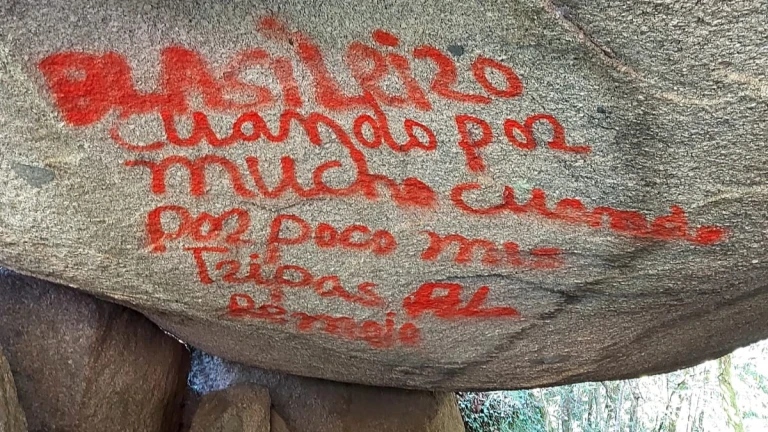 BLASILEIRO
cuando por
mucho cuando
por poco mis
Tripas AL
remojo